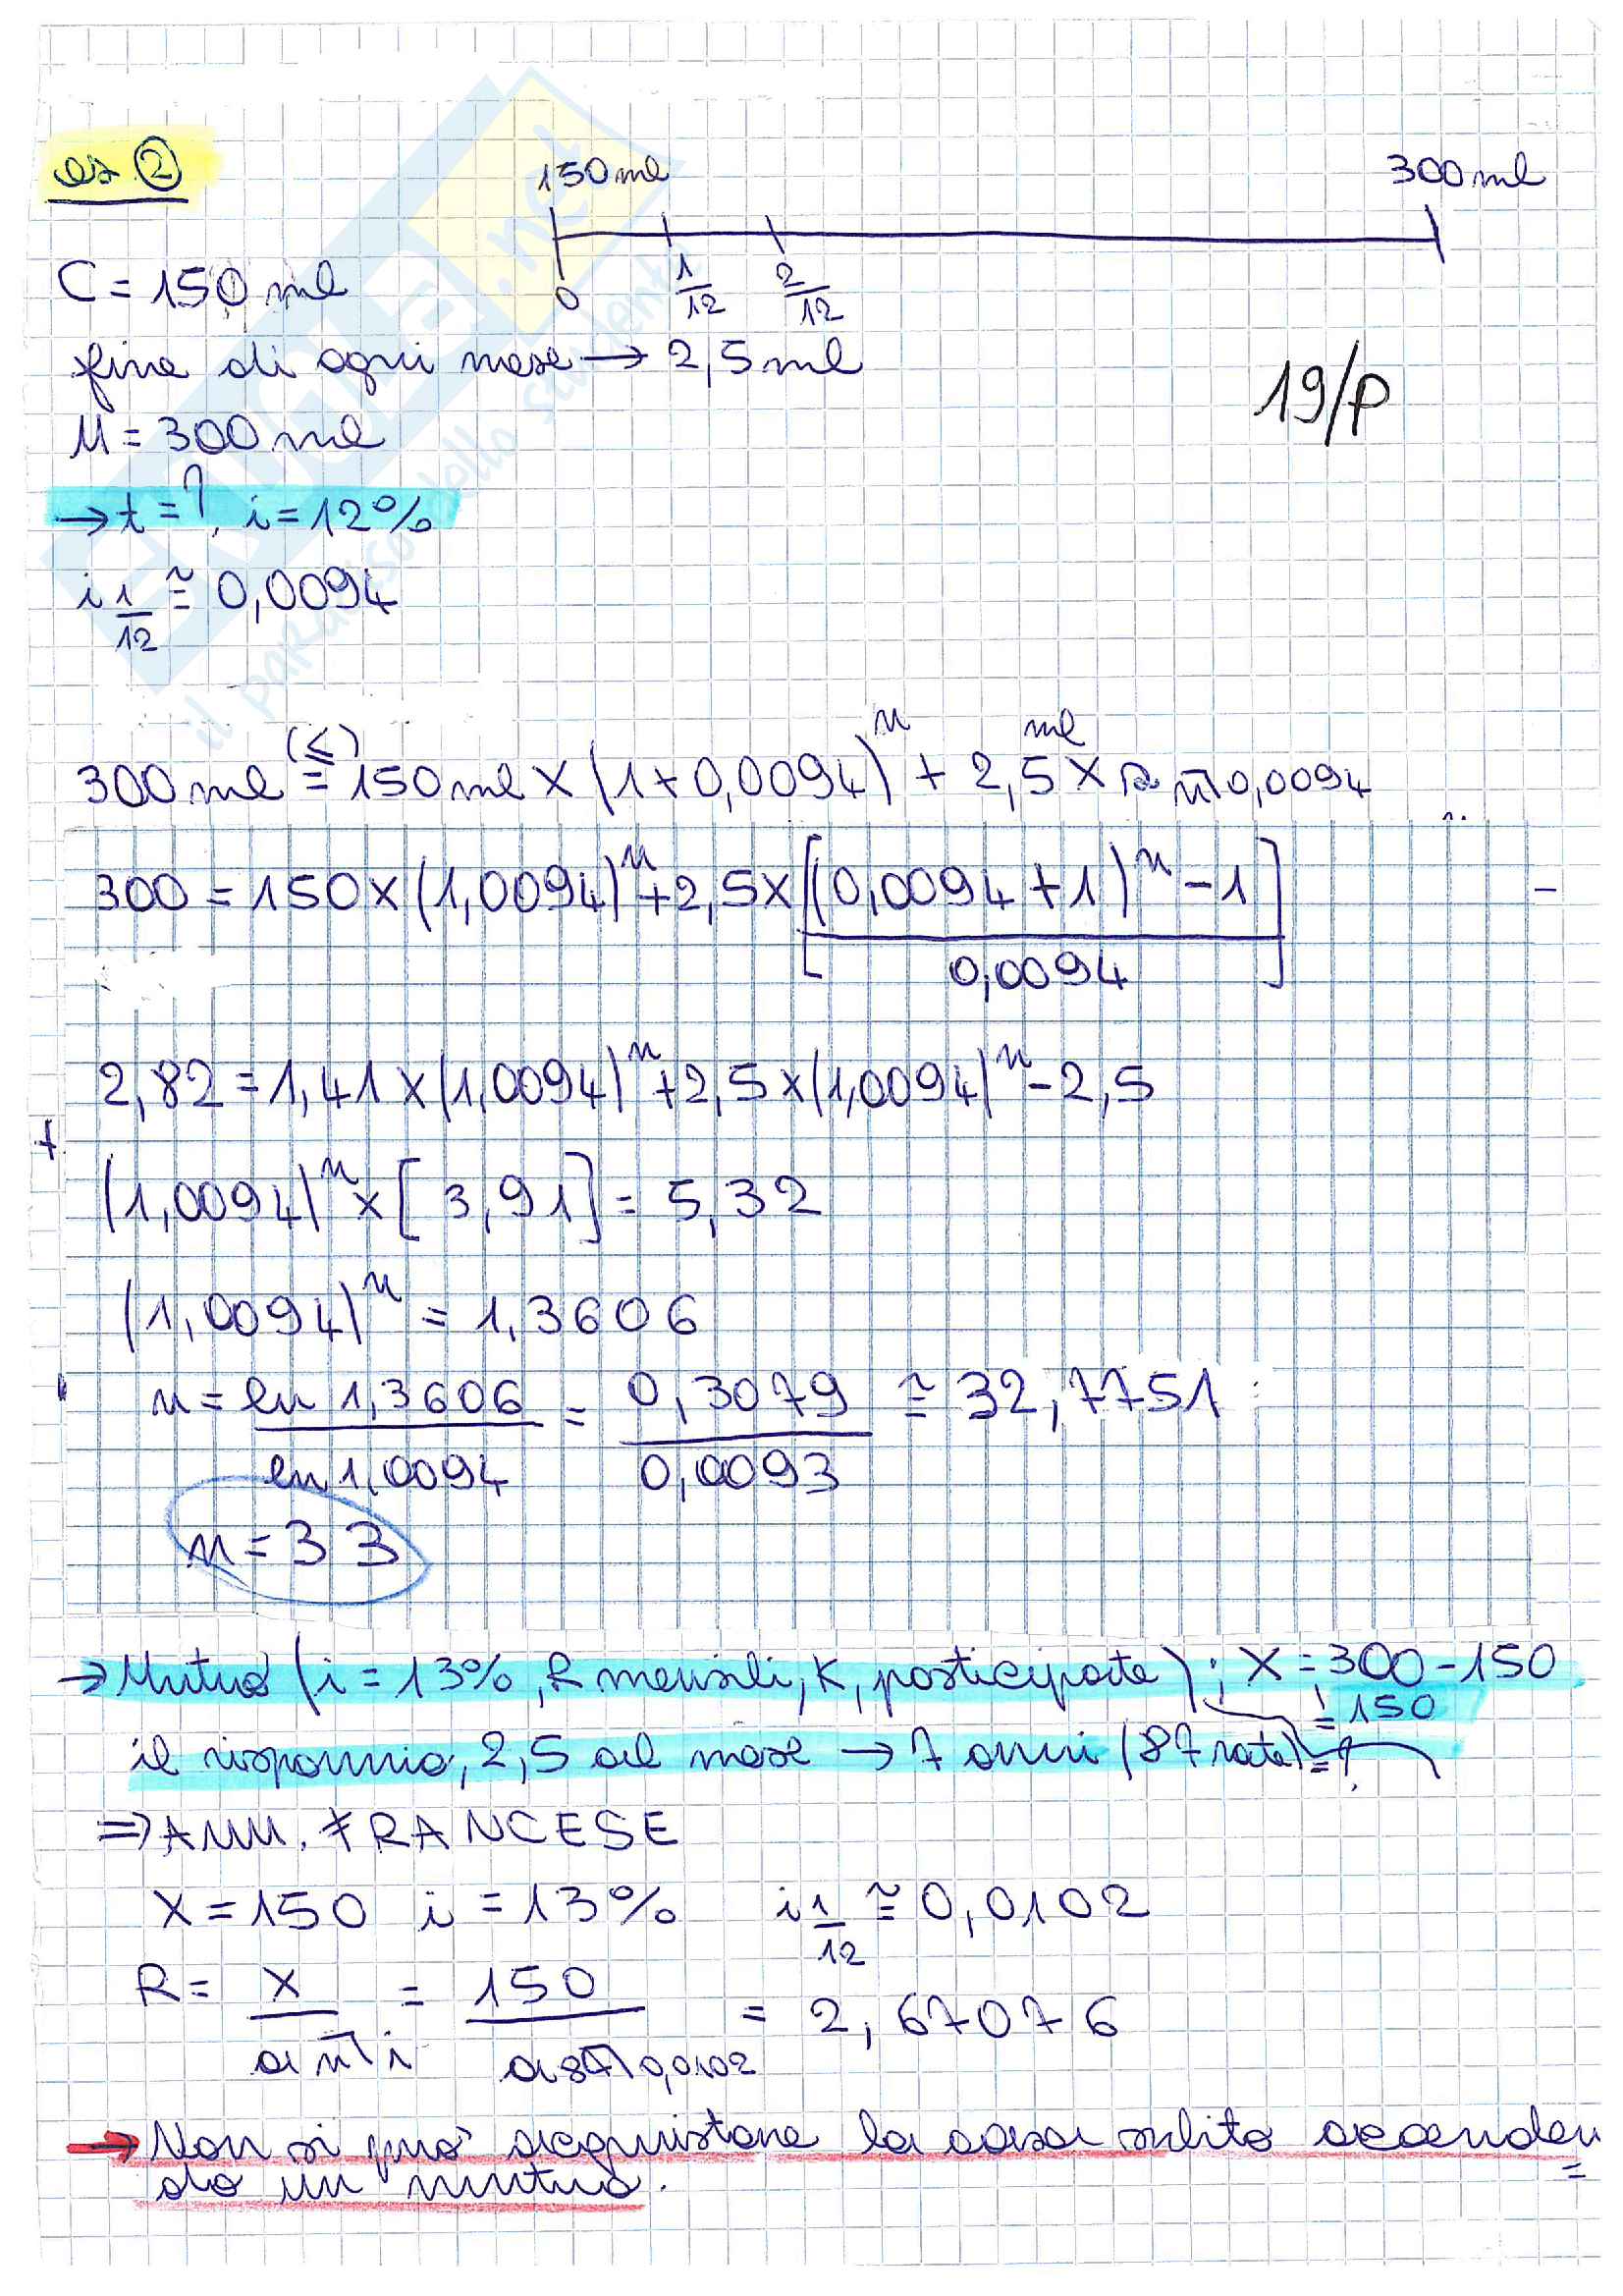 es ②
150 ml 300 ml
0 1/12 2/12
C = 150 ml
fine di ogni mese → 2,5 ml
19/P
M = 300 ml
→ t = ? i = 12%
i 1/12 ≅ 0,0094
300 ml (≤) = 150 ml × (1 + 0,0094)^n + 2,5 ml × s n̅| 0,0094
300 = 150 × (1,0094)^n + 2,5 × [((0,0094 + 1)^n - 1) / 0,0094]
2,82 = 1,41 × (1,0094)^n + 2,5 × (1,0094)^n - 2,5
(1,0094)^n × [3,91] = 5,32
(1,0094)^n = 1,3606
n = ln 1,3606 / ln 1,0094 = 0,3079 / 0,0093 ≅ 32,7751
n = 33
→ Mutuo (i = 13%, R mensili, K, posticipate); X = 300 - 150
= 150
il risparmio, 2,5 al mese → 7 anni (87 rate) = ?
⇒ AMM. FRANCESE
X = 150 i = 13% i 1/12 ≅ 0,0102
R = X / a n̅| i = 150 / a 87̅| 0,0102 = 2,67076
→ Non si può acquistare la casa subito accenden
do un mutuo.
EXIGLIA.net
il paradiso dello studente